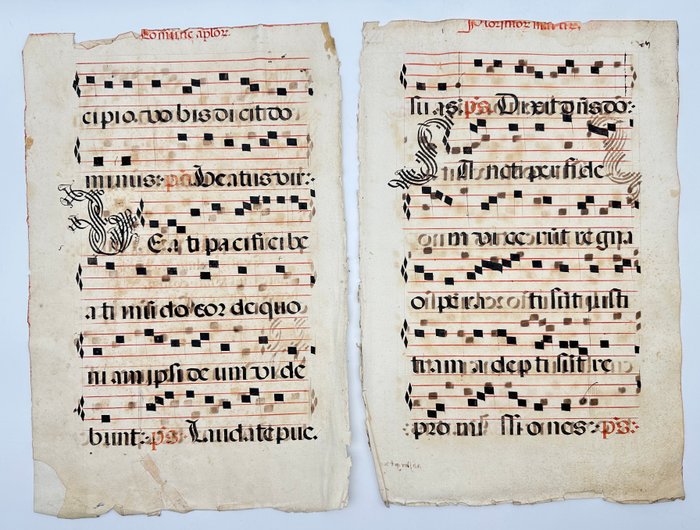 Comune aplor.
cipio. vo bis di cit do
minus: ps. Beatus vir:
BE a ti pa ci fi ci be
a ti mũ do cor de quo
ni am ip si de um vi de
bunt: ps. Laudate pue.
Plorimor
su as: ps. Dixit dñs do:
SAncti per fi de
vi ce rũt re gna
o pe ti sũt iusti
ti am a dep ti sũt re
pro mi ssi o nes: ps: